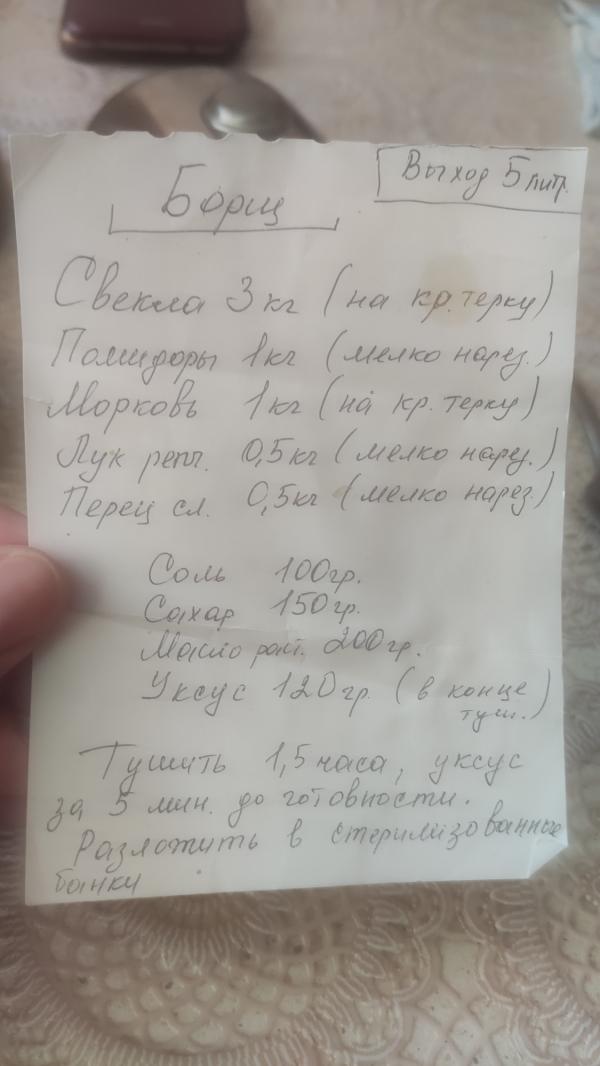 Борщ
Выход 5 литр.
Свекла 3 кг (на кр. терку)
Помидоры 1 кг (мелко нарез.)
Морковь 1 кг (на кр. терку)
Лук репч. 0,5 кг (мелко нарез.)
Перец сл. 0,5 кг (мелко нарез.)
Соль 100 гр.
Сахар 150 гр.
Масло раст. 200 гр.
Уксус 120 гр. (в конце
туш.)
Тушить 1,5 часа, уксус
за 5 мин. до готовности.
Разложить в стерилизованные
банки